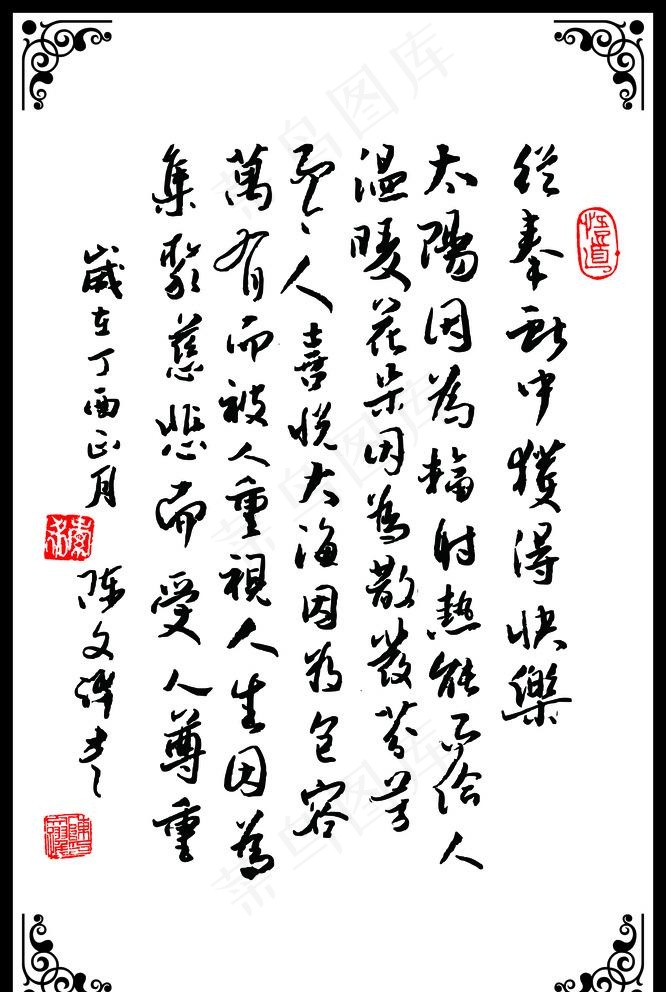 悟道
從奉獻中獲得快樂
太陽因為輻射熱能而給人
溫暖花朵因為散發芬芳
而令人喜悅大海因為包容
萬有而被人重視人生因為
集聚慈悲而受人尊重
歲在丁酉正月
陈文書
菜鸟图库
菜鸟图库
菜鸟图库